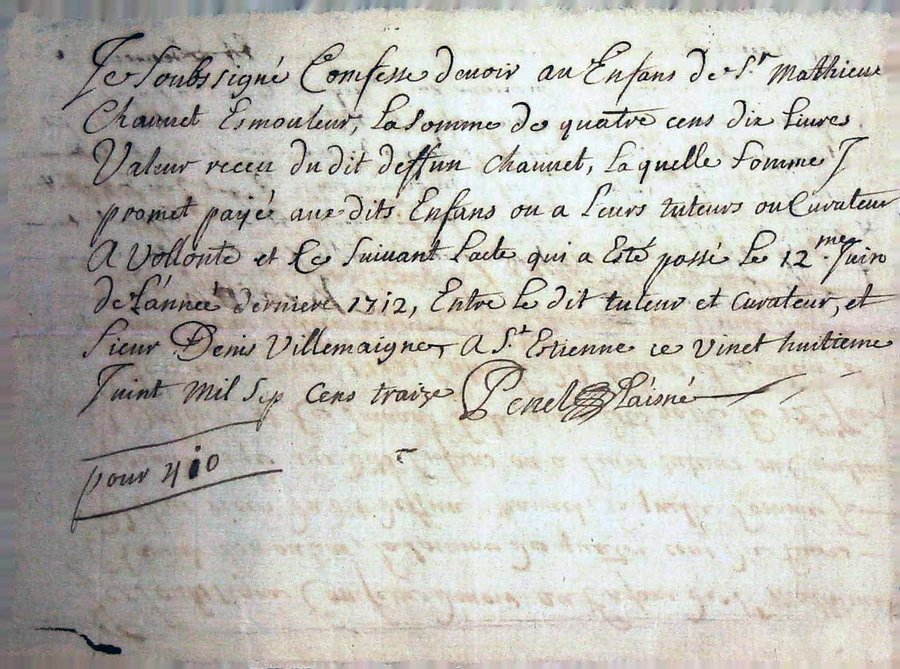 Je Soubssigné Comfesse devoir au Enfans de S.r Mathieu
Chauuet Esmouleur, La Somme de quatre cens dix Livre
Valeur receu du dit deffun Chauuet, Laquelle Somme J
promet payé aux dits Enfans ou a Leurs tuteurs ou Curateur
A Vollonte et Ce Suivant Lacte qui a Esté passé Le 12.me Juin
de L'anneé derniere 1712, Entre Le dit tuteur et Curateur, et
Sieur Denis Villemaigne A S.t Estienne ce Vinct huitieme
Juint Mil Sep Cens traize Penel Laisné
pour 410